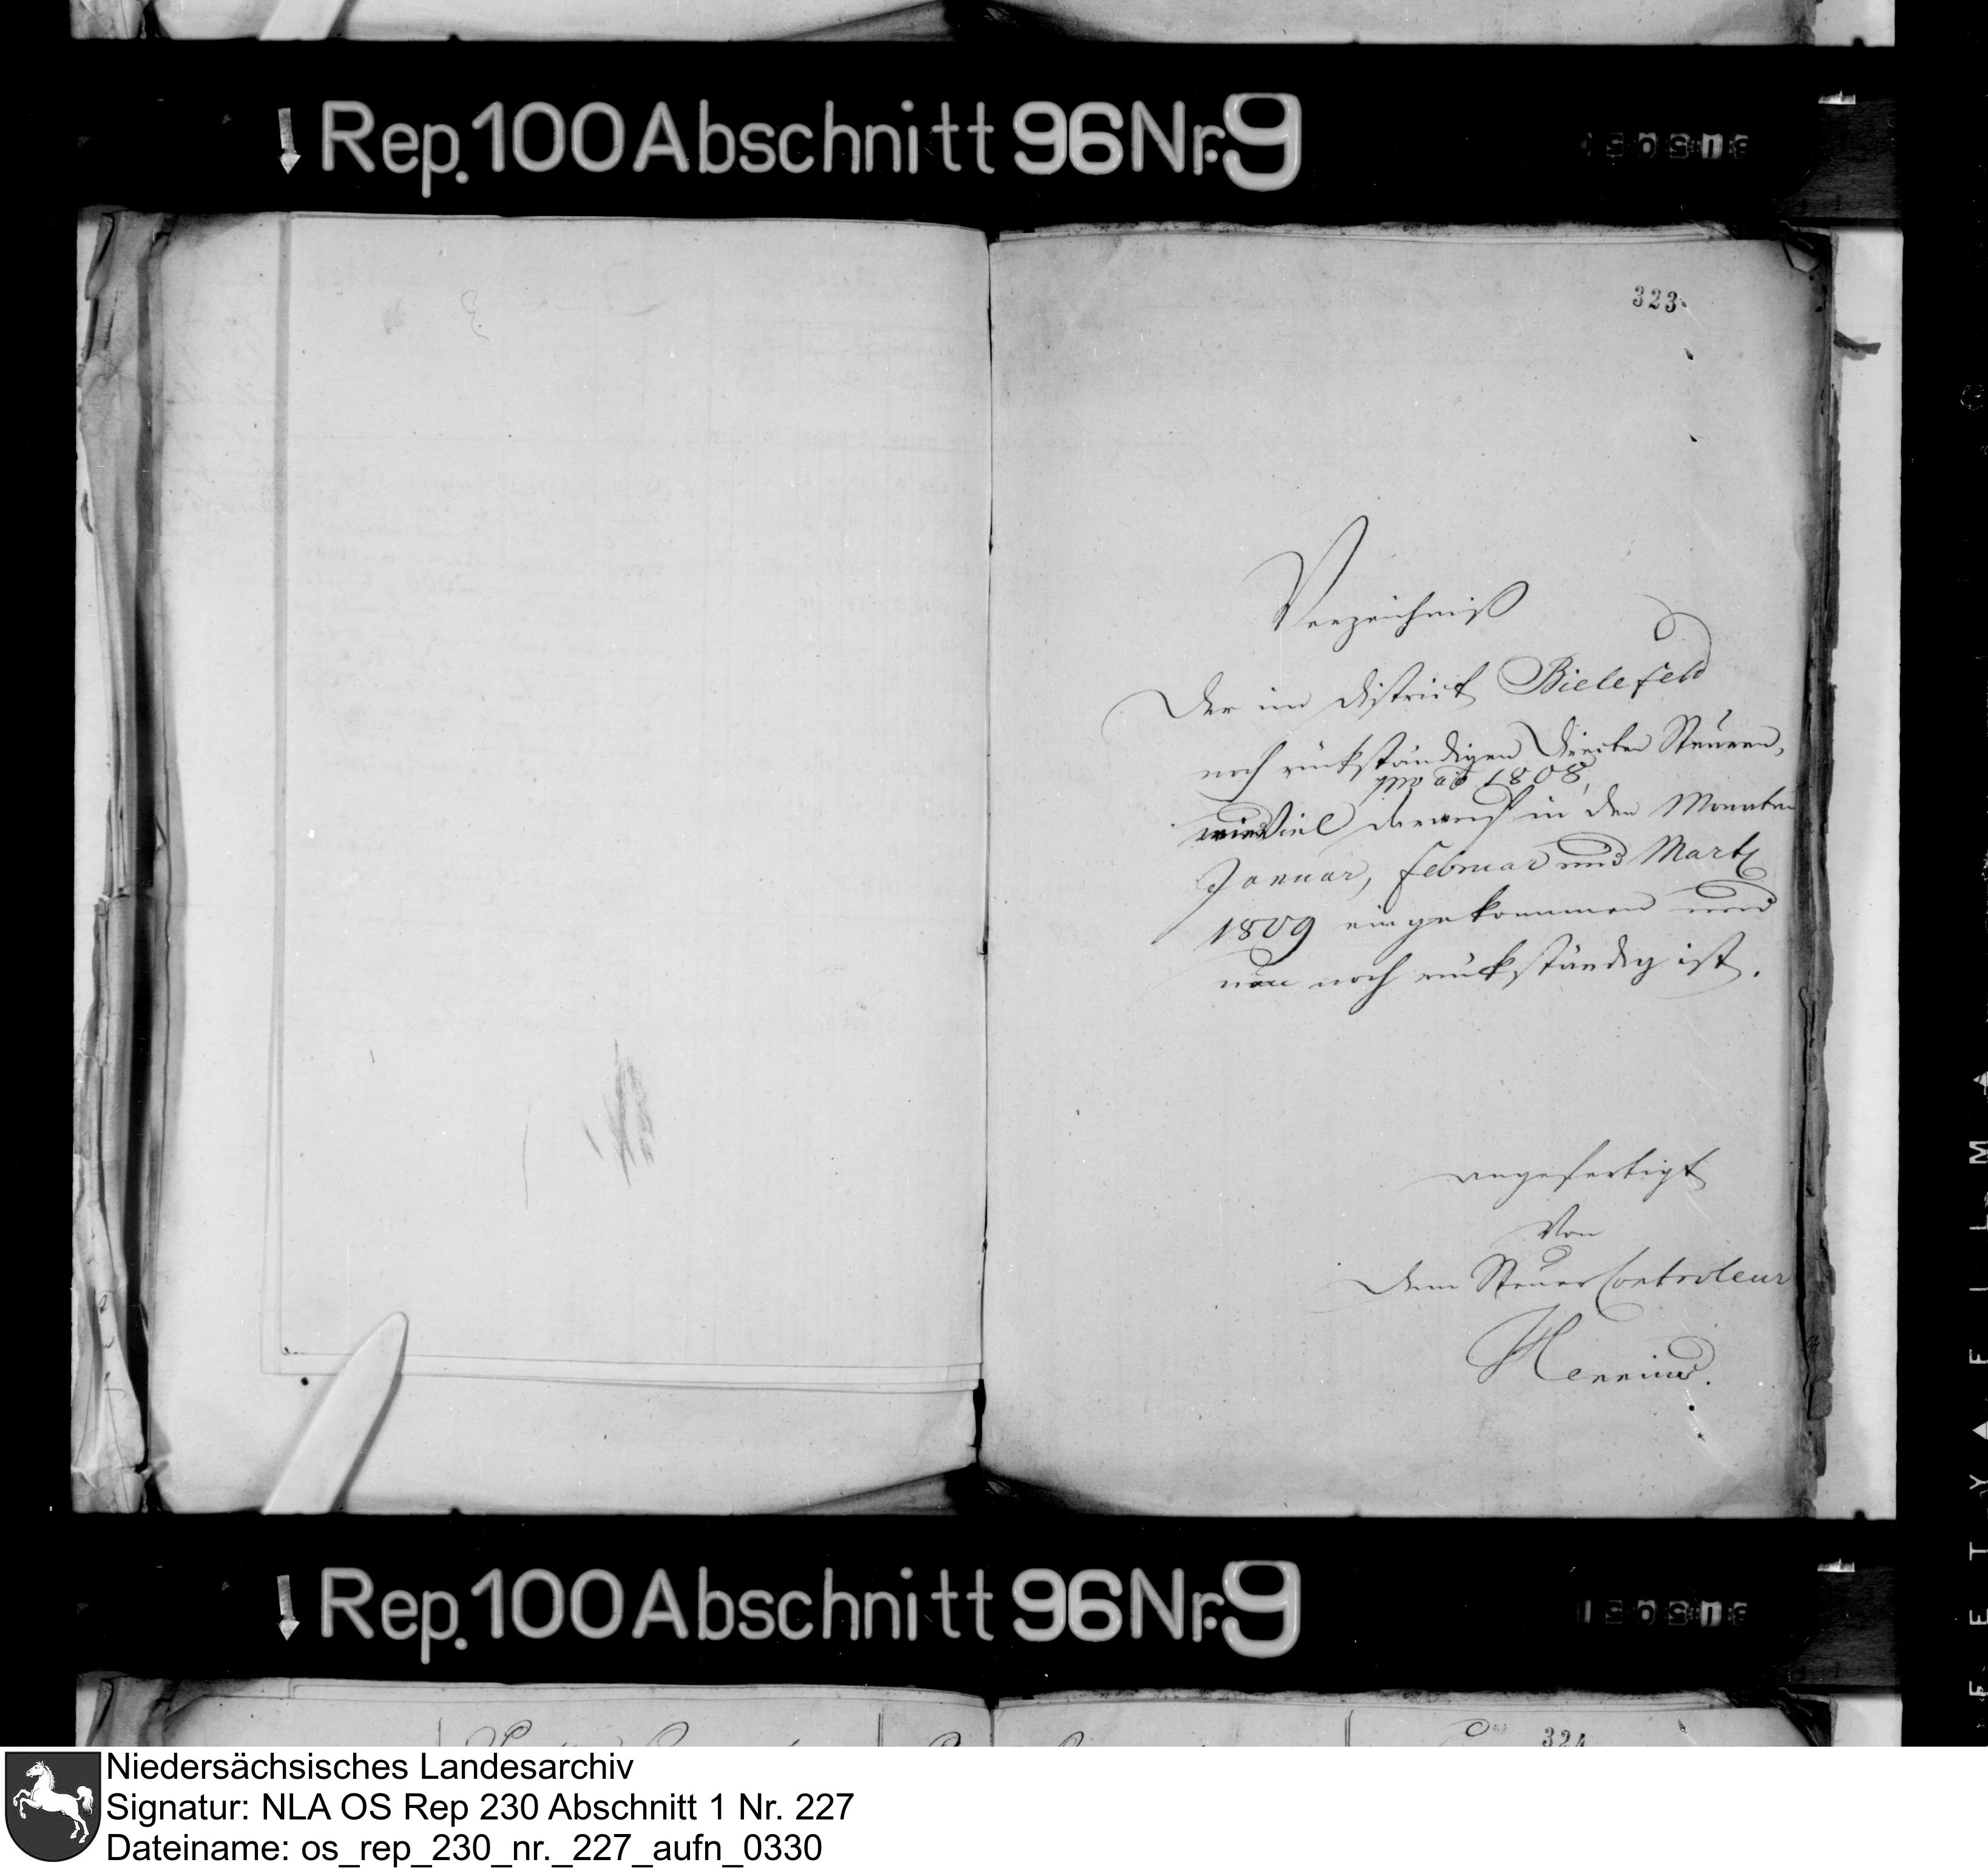 Rep. 100 Abschnitt 96 Nr. 9
323.
Verzeichniß
Der im District Bielefeld
noch rückständigen Directen Steuren,
pro ao 1808,
wieviel darauf in den Monaten
Januar, Februar und Martz
1809 eingekommen und
nun noch rückständig ist.
angefertigt
von
dem Steuer Controleur
Rep. 100 Abschnitt 96 Nr. 9
324
Niedersächsisches Landesarchiv
Signatur: NLA OS Rep 230 Abschnitt 1 Nr. 227
Dateiname: os_rep_230_nr._227_aufn_0330